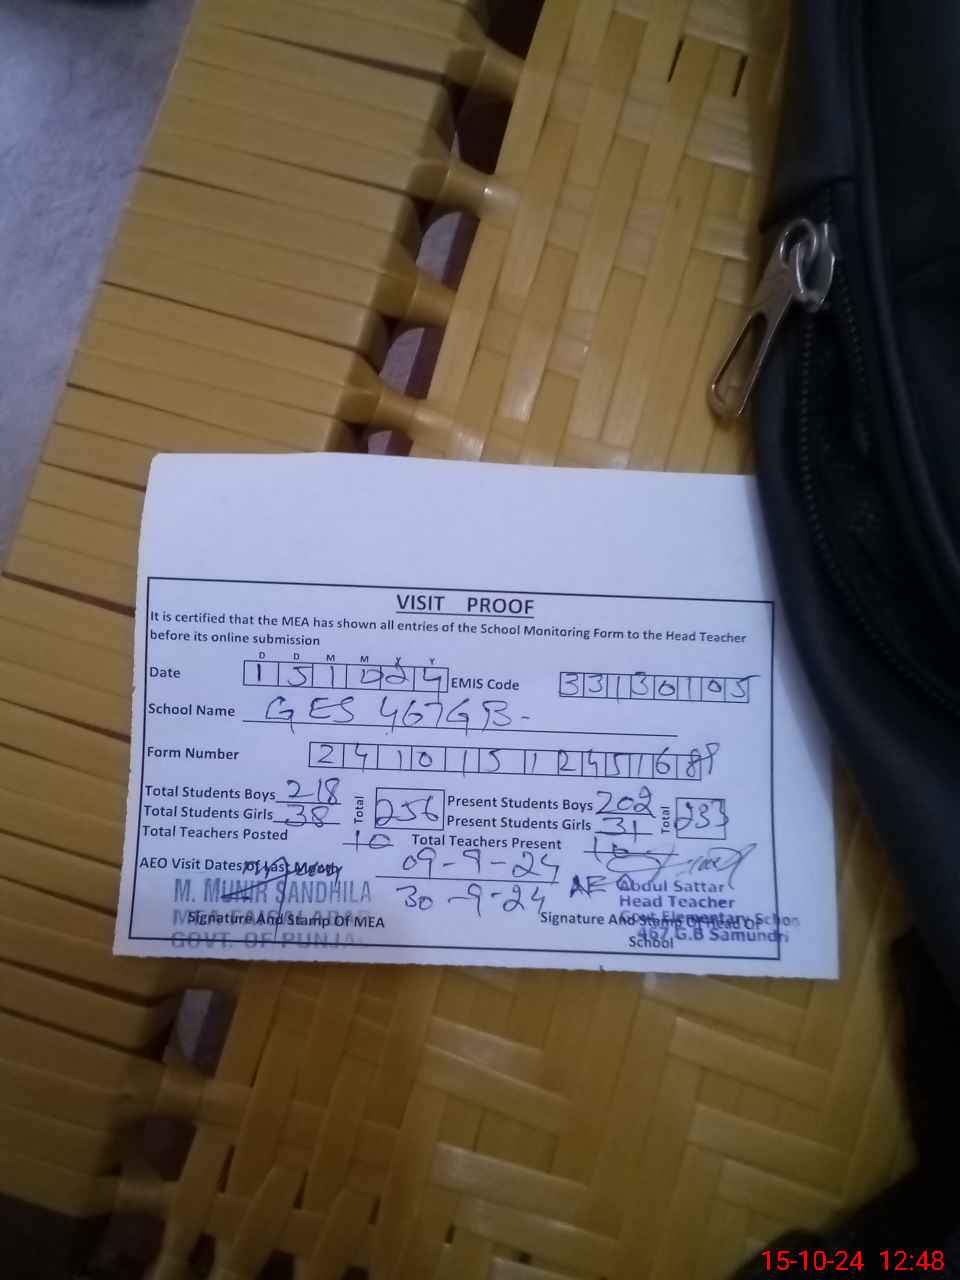 VISIT PROOF
It is certified that the MEA has shown all entries of the School Monitoring Form to the Head Teacher
before its online submission
D D M M Y Y
Date 1 5 1 0 2 4 EMIS Code 3 3 1 3 0 1 0 5
School Name GES 467 GB-
Form Number 2 4 1 0 1 5 1 2 4 5 1 6
Total Students Boys 218 Total 256 Present Students Boys 202 Total 233
Total Students Girls 38 Present Students Girls 31
Total Teachers Posted 10 Total Teachers Present 10
AEO Visit Dates of Last Month 09-9-24
30-9-24
M. MUNIR SANDHILA
MEA FAISALABAD
GOVT. OF PUNJAB
Signature And Stamp Of MEA
Abdul Sattar
Head Teacher
Govt. Elementary School
467 G.B Samundri
Signature And Stamp Of Head Of
School
15-10-24 12:48